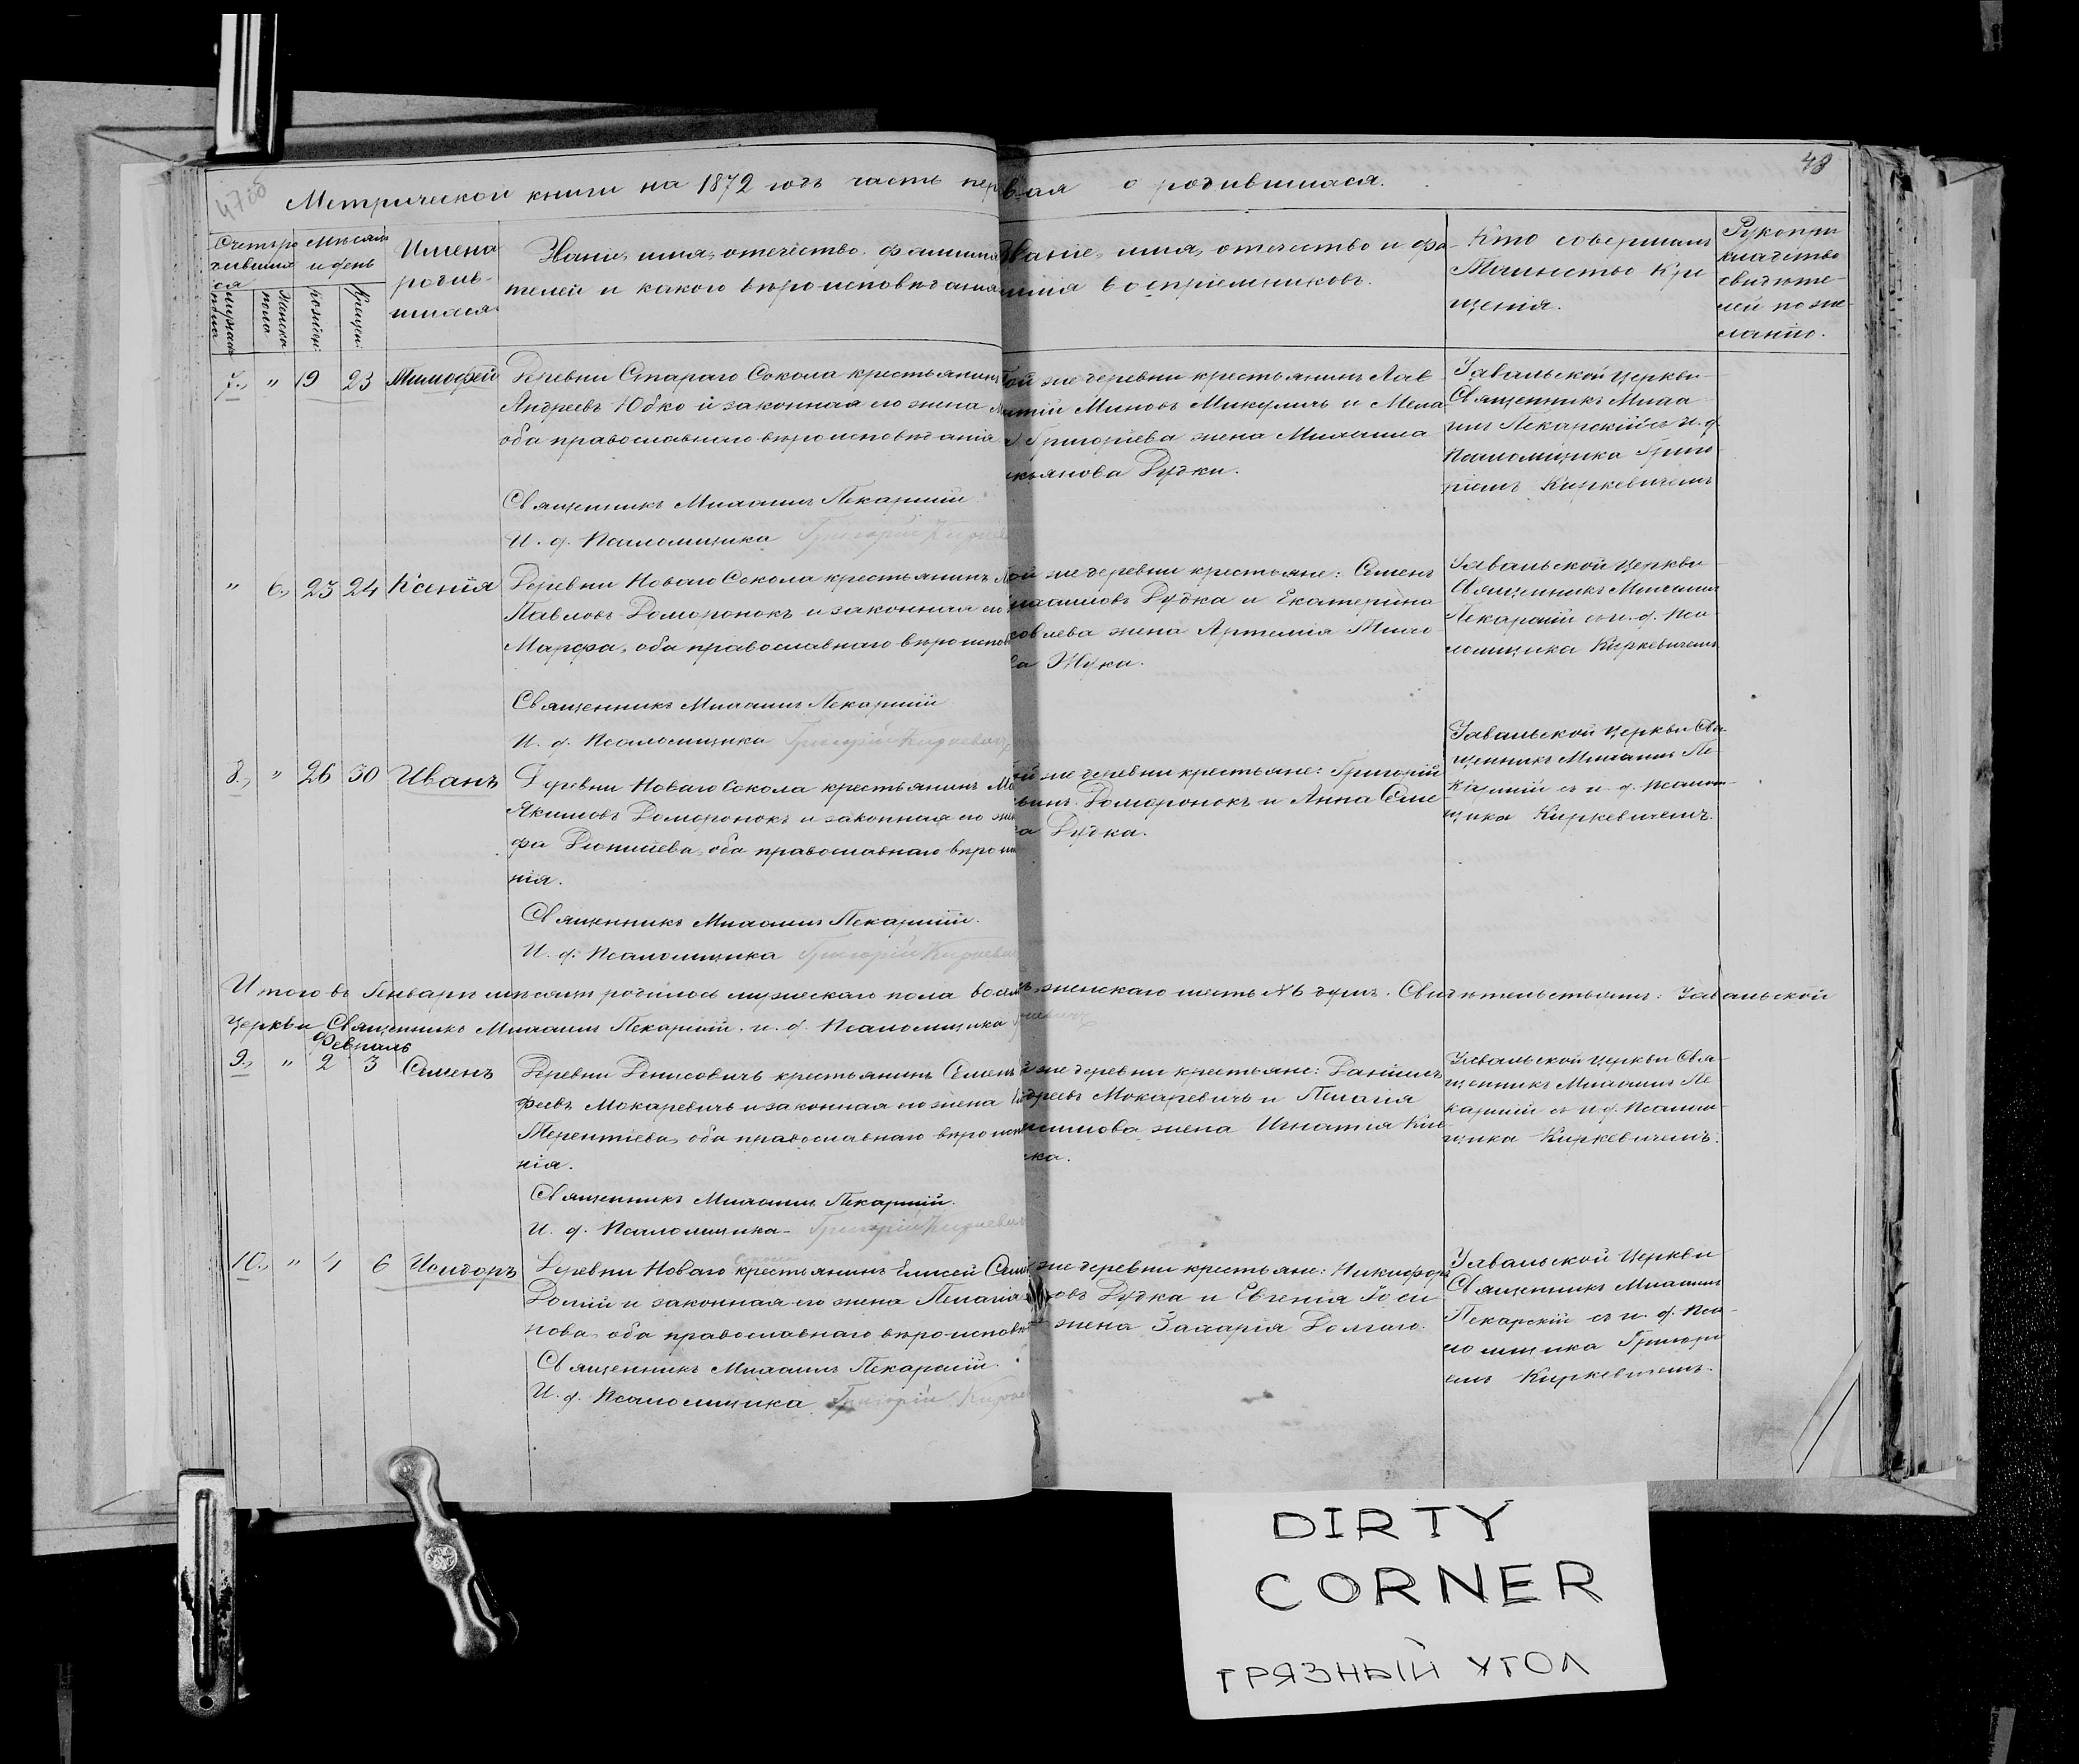 47об
48
Метрической книги на 1872 годъ часть первая о родившихся.
Счетъ ро
дивших
ся
Мужеска
пола
Женска
пола
Мѣсяцъ
и день
рожден:
крещен:
Имена
родив-
шихся
Званіе, имя, отечество, фамилія
телей и какого вѣроисповѣданія
Званіе, имя, отечество и фа-
милія воспріемниковъ.
Кто совершалъ
Таинство Кре
щенія.
Рукопри
кладство
свидѣте-
лей по же-
ланію.
7. " 19 23 Тимофей
Деревни Стараго Сокола крестьянинъ
Андреевъ Юбко и законная его жена
оба православнаго вѣроисповѣданія
Священникъ Михаилъ Пекарскій
И. д. Псаломщика Григорій
той же деревни крестьянинъ Лав-
рентій Миновъ Микуличъ и Мела-
Григоріева жена Михаила
кьянова Дудки.
Завальской церкви
Священникъ Миха-
илъ Пекарскій съ и. д.
Псаломщика Григо-
ріемъ Киркевичемъ
" 6. 23 24 Ксенія
Деревни Новаго Сокола крестьянинъ
Павловъ Доморонокъ и законная его
Марфа, оба православнаго вѣроиспов
Священникъ Михаилъ Пекарскій
И. д. Псаломщика Григорій Киркевичъ
той же деревни крестьяне: Семенъ
ихаиловъ Дудка и Екатерина
совлева жена Артемія
Жуки.
Завальской церкви
Священникъ Михаилъ
Пекарскій съ и. д. Пса-
ломщика Киркевичемъ.
8. " 26 30 Иванъ
Деревни Новаго Сокола крестьянинъ
Якимовъ Доморонокъ и законная его
фа Діонисіева, оба православнаго вѣроис
нія.
Священникъ Михаилъ Пекарскій.
И. д. Псаломщика Григорій Киркевич
той же деревни крестьяне: Григорій
Доморонокъ и Анна Семе
Дудка.
Завальской церкви Свя-
щенникъ Михаилъ Пе-
карскій съ и. д. Псалом-
щика Киркевичемъ.
Итого въ Генварѣ мѣсяцѣ родилось мужескаго пола восемь, женскаго шесть №6 душъ. Свидѣтельствуемъ: Завальской
Церкви Священникъ Михаилъ Пекарскій. и. д. Псаломщика
Февраль
9. " 2 3 Семенъ
Деревни Денисовичъ крестьянинъ Семенъ
феевъ Мокаревичъ и законная его жена
Терентіева, оба православнаго вѣроисп
нія.
Священникъ Михаилъ Пекарскій.
И. д. Псаломщика- Григорій Киркевич
же деревни крестьяне: Даніилъ
дреевъ Мокаревичъ и Пелагія
симова жена Игнатія
ка.
Завальской церкви Свя-
щенникъ Михаилъ Пе-
карскій съ и. д. Псалом-
щика Киркевичемъ.
10. " 4 6 Исидоръ
Сокола
Деревни Новаго крестьянинъ Елисей
Долгій и законная его жена Пелагія
нова, оба православнаго вѣроисповѣ
Священникъ Михаилъ Пекарскій.
И. д. Псаломщика Григорій
же деревни крестьяне: Никифоръ
овъ Дудка и Евгенія
жена Захарія Долгаго.
Завальской Церкви
Священникъ Михаилъ
Пекарскій съ и. д. Пса-
ломщика Григорі-
емъ Киркевичемъ.
DIRTY
CORNER
ГРЯЗНЫЙ УГОЛ